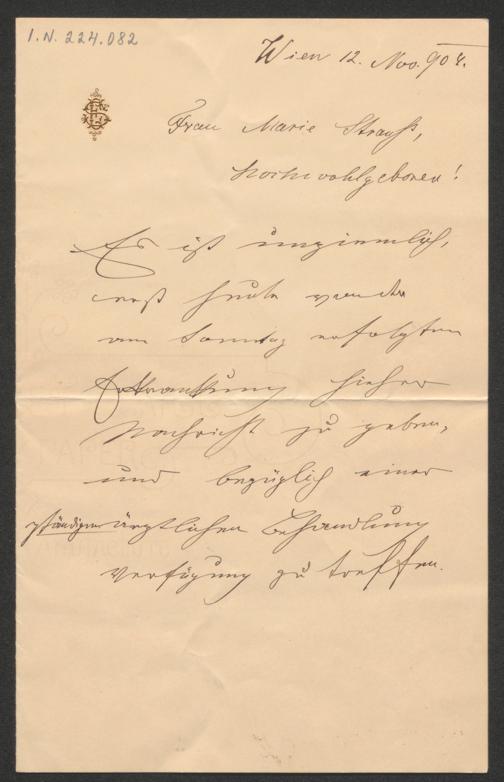 I.N. 224.082
Wien 12. Nov. 904.
Frau Marie Strauß,
Hochwohlgeboren!
Es ist unziemlich,
erst heute von der
am Sonntag erfolgten
Erkrankung hieher
Nachricht zu geben,
und bezüglich einer
ständigen ärztlichen Behandlung
Verfügung zu treffen.